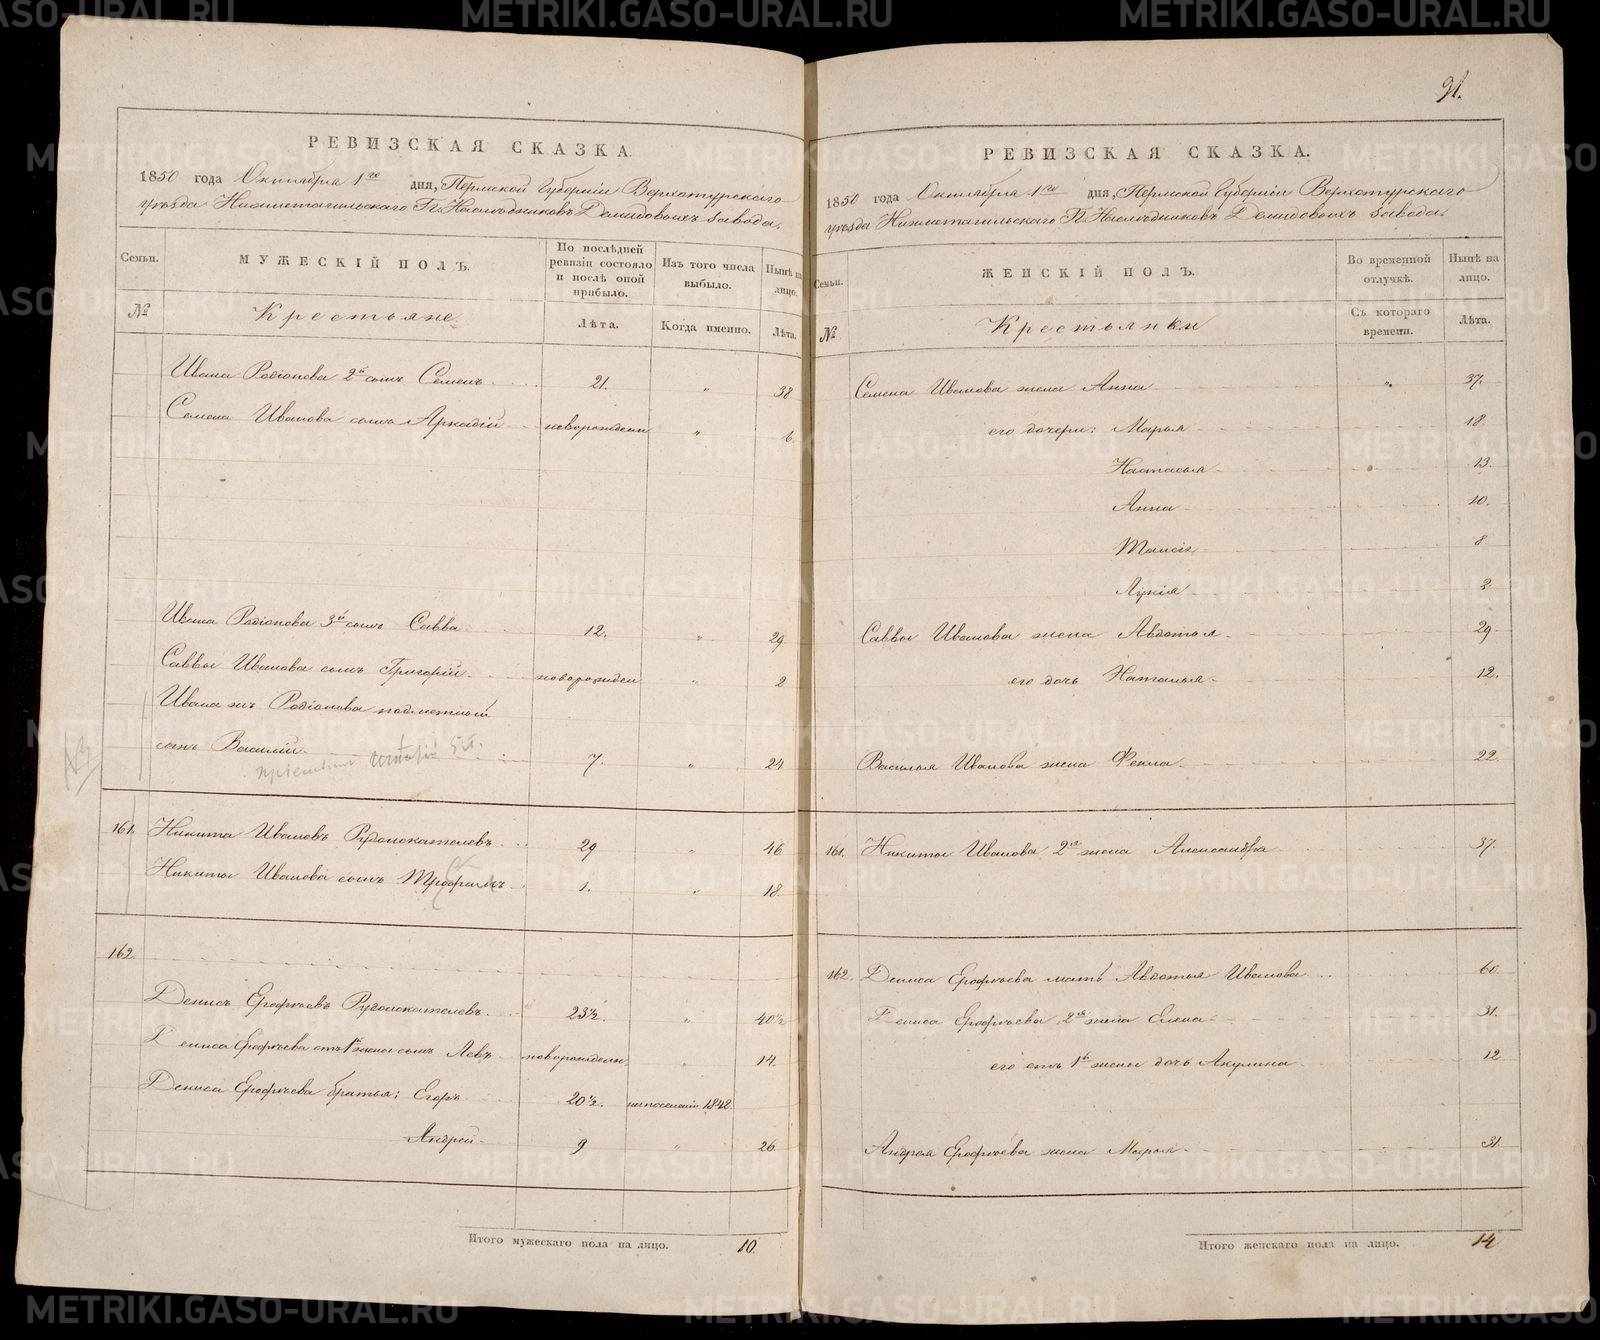 91.
РЕВИЗСКАЯ СКАЗКА.
1850 года Октября 1го дня, Пермской Губерніи Верхотурскаго
уѣзда Нижнетагильскаго Гг. Наслѣдниковъ Демидовыхъ завода.
Семьи.
МУЖЕСКІЙ ПОЛЪ.
По послѣдней ревизіи состояло и послѣ оной прибыло.
Изъ того числа выбыло.
Нынѣ на лицо.
№
Крестьяне
Лѣта.
Когда именно.
Лѣта.
Ивана Родіонова 2й сынъ Семенъ 21. " 38
Семена Иванова сынъ Аркадій новорожден " 6
Ивана Родіонова 3й сынъ Савва 12. " 29
Саввы Иванова сынъ Григорій новорожден " 2
Ивана жъ Родіонова
сынъ Василій 7. " 24
161. Никита Ивановъ Рудопокателевъ 29 " 46
Никиты Иванова сынъ Трофимъ 1. " 18.
162.
Денисъ Ерофѣевъ Рудопокателевъ 23½. " 40½
Дениса Ерофѣева отъ 1й жены сынъ Левъ новорожден " 14.
Дениса Ерофѣева братья: Егоръ 20½. на поселеніи 1842
Андрей 9 " 26
Итого мужескаго пола на лицо. 10.
РЕВИЗСКАЯ СКАЗКА.
1850 года Октября 1го дня, Пермской Губерніи Верхотурскаго
уѣзда Нижнетагильскаго Гг. Наслѣдниковъ Демидовыхъ завода.
Семьи.
ЖЕНСКІЙ ПОЛЪ.
Во временной отлучкѣ.
Нынѣ на лицо.
№
Крестьянки
Съ котораго времени.
Лѣта.
Семена Иванова жена Анна " 37.
его дочери: Марья 18.
Настасья 13.
Анна 10.
Таисія 8
Лукія 2
Саввы Иванова жена Авдотья 29
его дочь Наталья 12.
Василья Иванова жена Фекла 22.
161. Никиты Иванова 2я жена Александра 37.
162. Дениса Ерофѣева мать Авдотья Иванова 60.
Дениса Ерофѣева 2я жена Елена 31.
его отъ 1й жены дочь Акулина 12
Андрея Ерофѣева жена Марья 31.
Итого женскаго пола на лицо. 14
METRIKI.GASO-URAL.RU